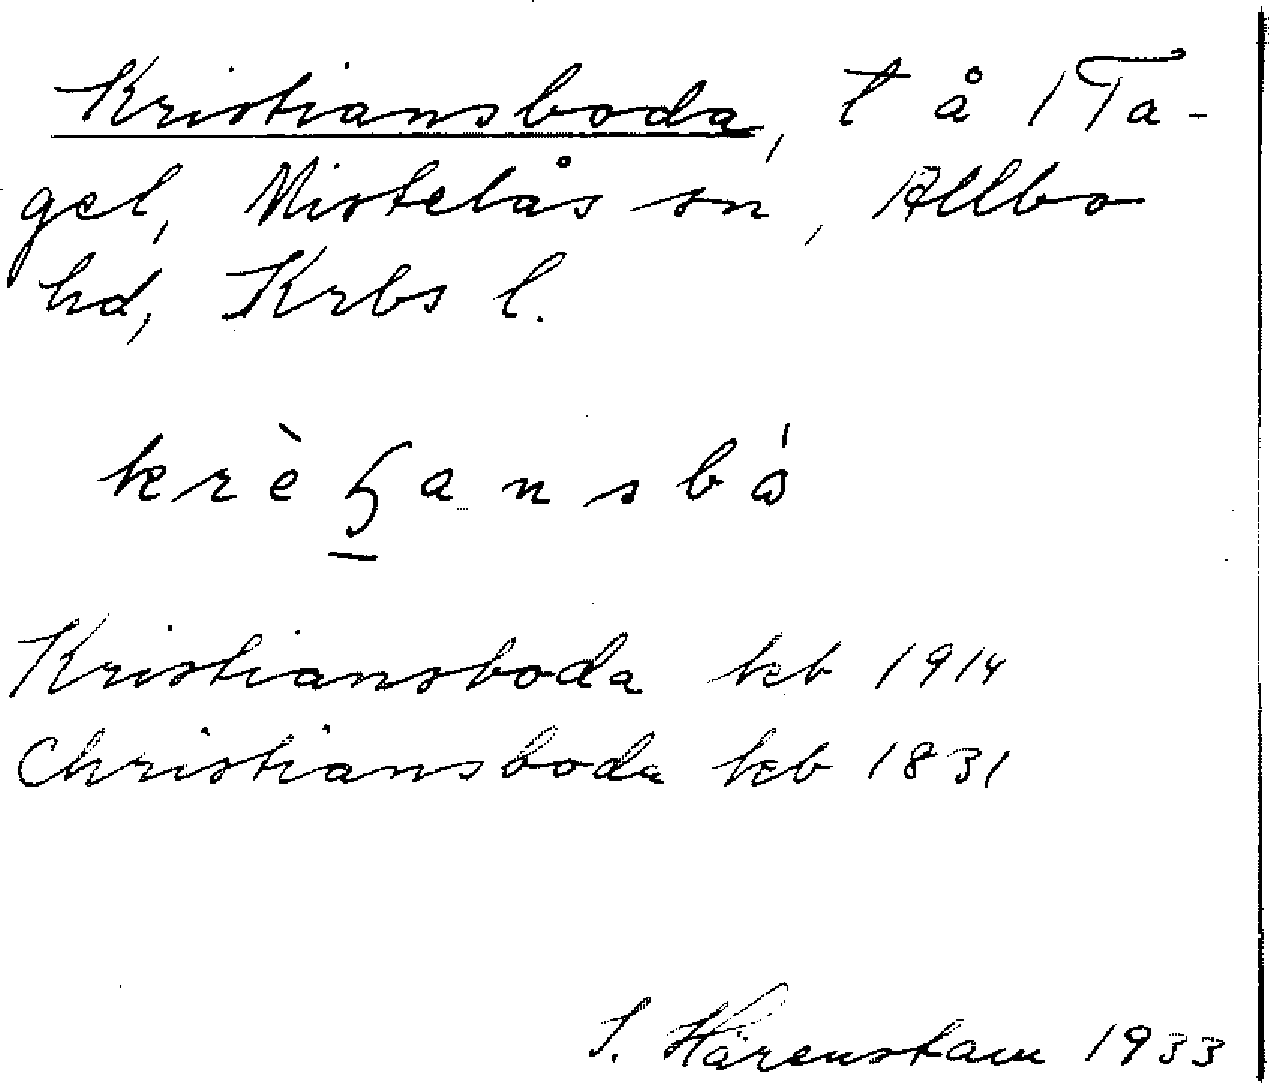 Kristiansboda, t å 1 Ta-
gel, Mistelås sn, Allbo
hd, Krbs l.
Kristiansboda kb 1914
Christiansboda kb 1831
S. Härenstam 1933